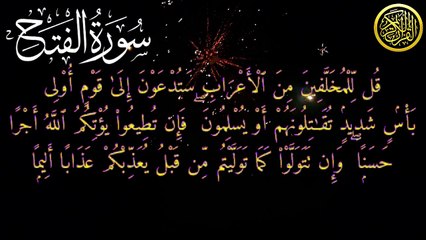 سُورَةُ الفَتْح
قُل لِّلْمُخَلَّفِينَ مِنَ ٱلْأَعْرَابِ سَتُدْعَوْنَ إِلَىٰ قَوْمٍ أُو۟لِى
بَأْسٍ شَدِيدٍ تُقَـٰتِلُونَهُمْ أَوْ يُسْلِمُونَ ۖ فَإِن تُطِيعُوا۟ يُؤْتِكُمُ ٱللَّهُ أَجْرًا
حَسَنًا ۖ وَإِن تَتَوَلَّوْا۟ كَمَا تَوَلَّيْتُم مِّن قَبْلُ يُعَذِّبْكُمْ عَذَابًا أَلِيمًا